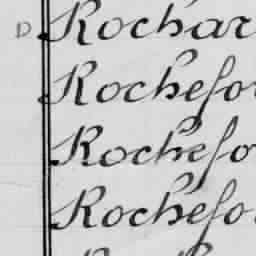 D Rochar
Rochefo
Rochefo
Rochefo